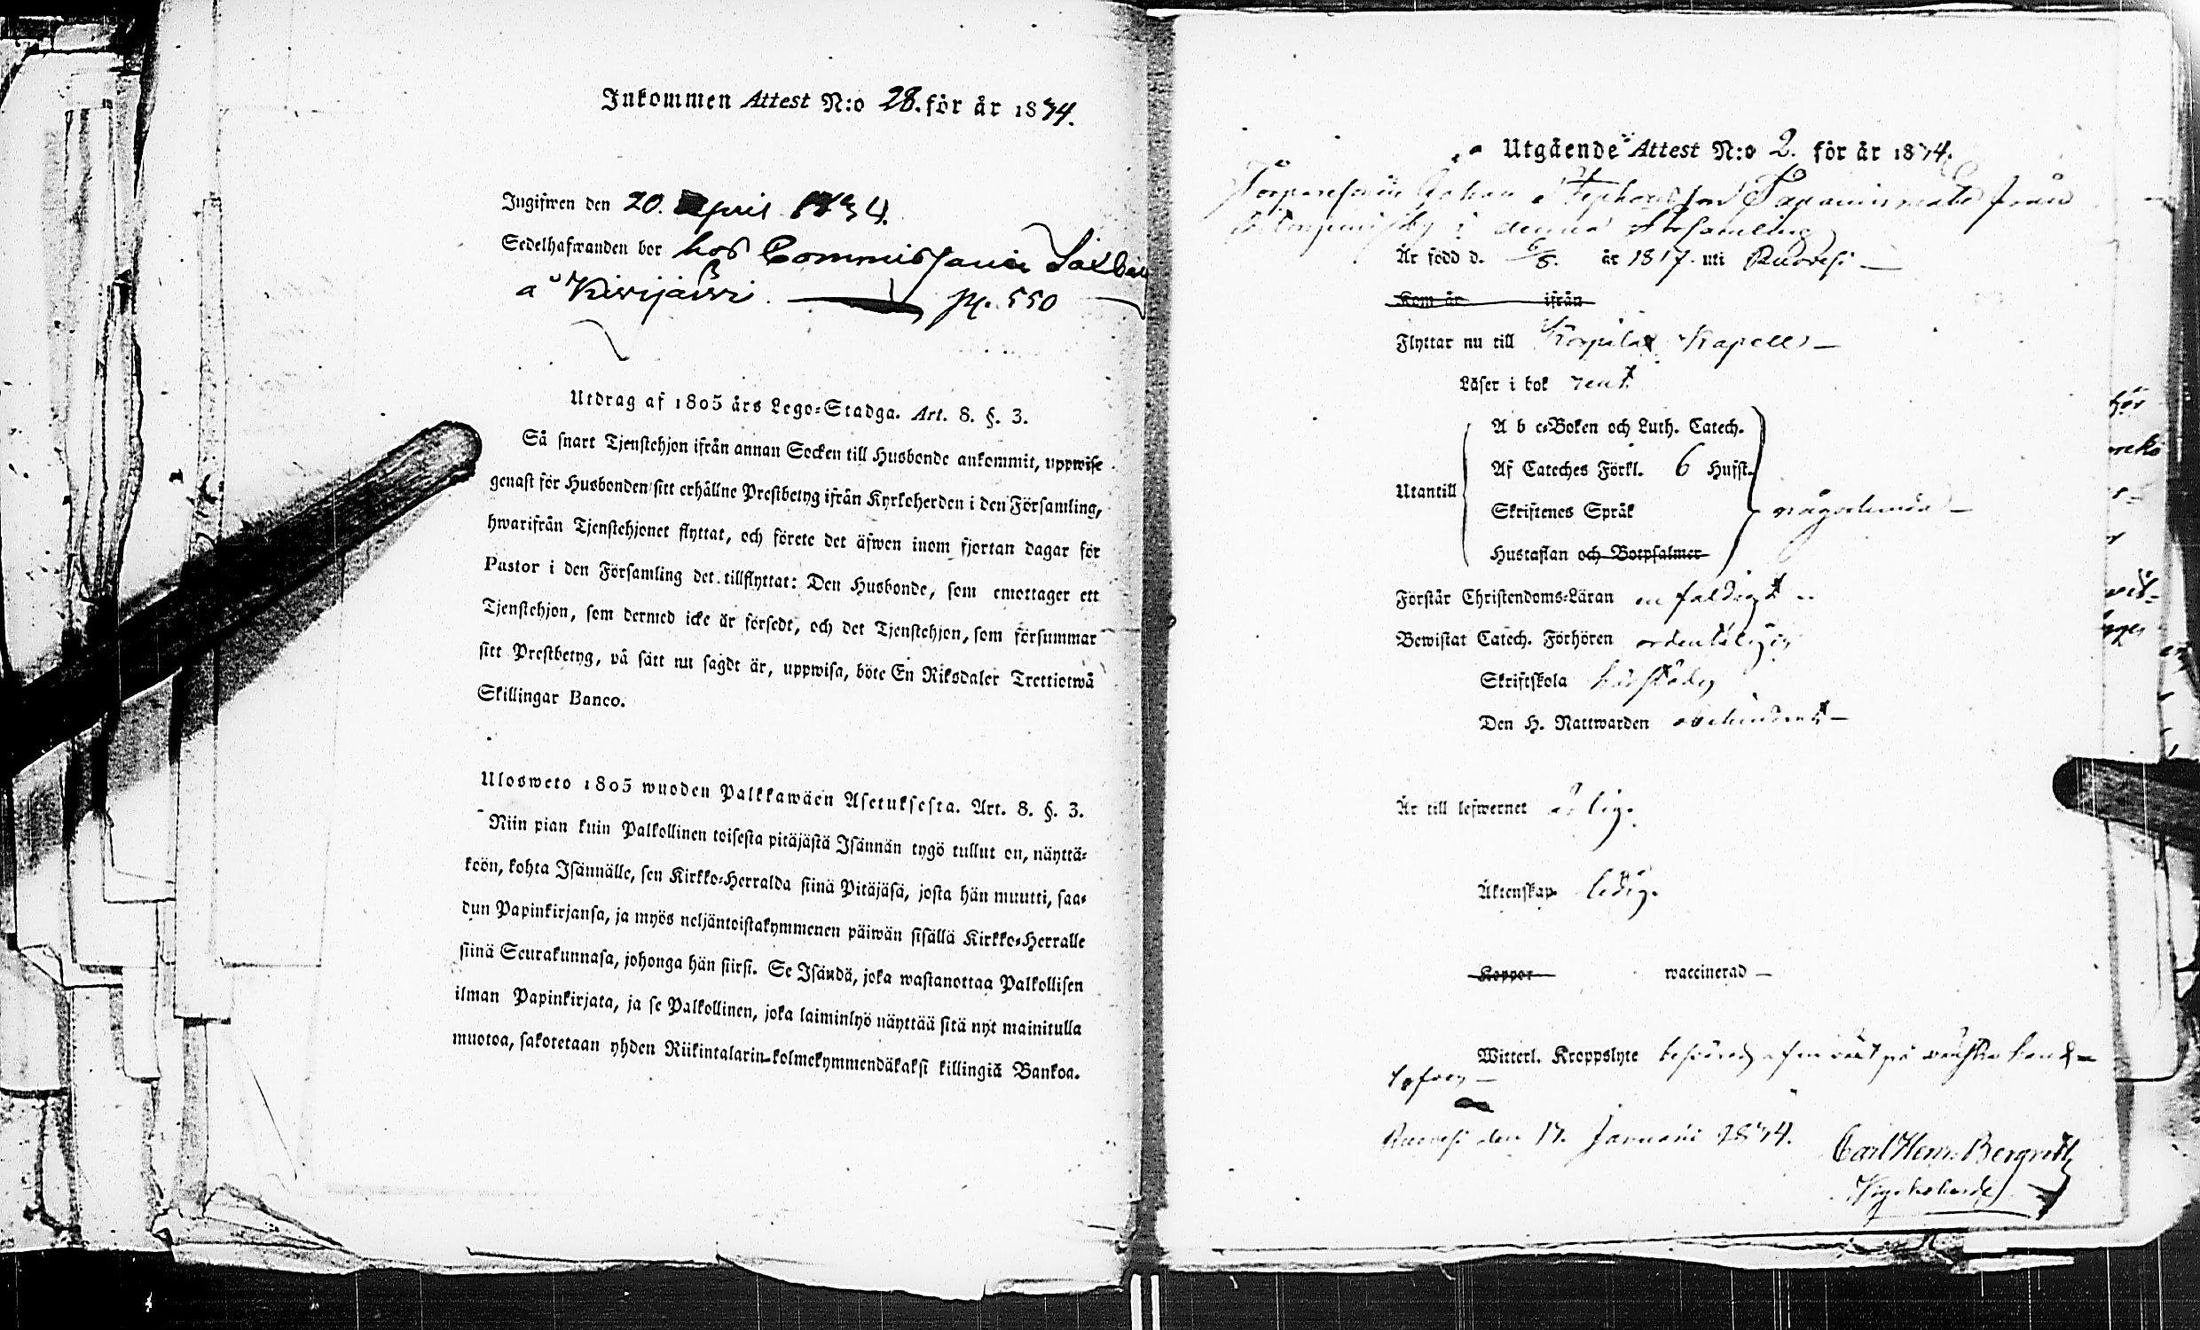 Inkommen Attest N:o 28. för år 1834.
Ingifwen den 20. April 1834.
Sedelhafwanden bor hos Commissarien
å Kivijärvi. p. 550
Utdrag af 1805 års Lego-Stadga. Art. 8. §. 3.
Så snart Tjenstehjon ifrån annan Socken till Husbonde ankommit, uppwise
genast för Husbonden sitt erhållne Prestbetyg ifrån Kyrkoherden i den Församling,
hwarifrån Tjenstehjonet flyttat, och förete det äfwen inom fjortan dagar för
Pastor i den Församling det tillflyttat: Den Husbonde, som emottager ett
Tjenstehjon, som dermed icke är försedt, och det Tjenstehjon, som försummar
sitt Prestbetyg, på sätt nu sagdt är, uppwisa, böte En Riksdaler Trettiotwå
Skillingar Banco.
Ulosweto 1805 wuoden Palkkawäen Asetuksesta. Art. 8. §. 3.
Niin pian kuin Palkollinen toisesta pitäjästä Isännän tygö tullut on, näyttä-
köön, kohta Isännälle, sen Kirkko-Herralda siinä Pitäjäsä, josta hän muutti, saa-
dun Papinkirjansa, ja myös neljäntoistakymmenen päiwän sisällä Kirkko-Herralle
siinä Seurakunnasa, johonga hän siirsi. Se Isändä, joka wastanottaa Palkollisen
ilman Papinkirjata, ja se Palkollinen, joka laiminlyö näyttää sitä nyt mainitulla
muotoa, sakotetaan yhden Riikintalarin kolmekymmendäkaksi killingiä Bankoa.
Utgående Attest N:o 2. för år 1834.
Johan från
i denna Församling
Är född d. 6/8. år 1817. uti Ruovesi
Kom år ifrån
Flyttar nu till Korpilax Kapell
Läser i bok rent
A b c-Boken och Luth. Catech.
Af Cateches Förkl. 6 Hufst.
Utantill
Skriftenes Språk någorlunda
Hustaflan och Botpsalmer
Förstår Christendoms-Läran enfaldigt
Bewistat Catech. Förhören ordentligen
Skriftskola härstädes
Den H. Nattwarden obehindrat
Är till lefwernet ärlig.
Äktenskap ledig.
Koppor waccinerad
Witterl. Kroppslyte befriad
Ruovesi den 17. Januarii 1834.
Carl Henr. Bergroth
Kyrkoherde